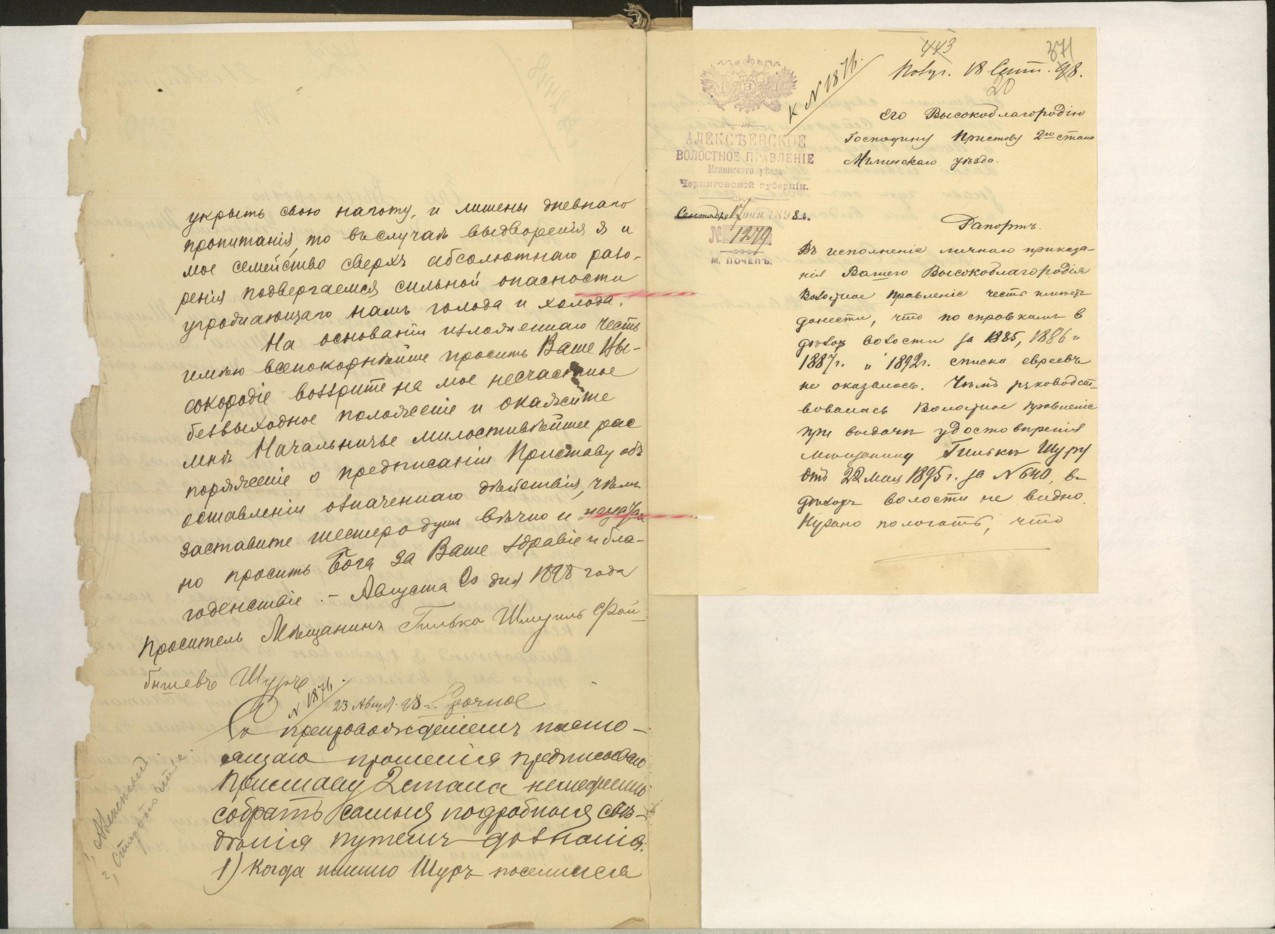 укрыть свою наготу, и лишены дневнаго
пропитанія, то въ случаѣ выдворенія я и
мое семейство сверхъ абсолютнаго разо-
ренія подвергаемся сильной опасности
угрожающаго намъ голода и холода.
На основаніи изложеннаго честь
имѣю всепокорнѣйше просить Ваше Вы-
сокородіе воззрите на мое несчастное
безвыходное положеніе и окажите
мнѣ Начальничье милостивѣйшее рас
поряженіе о предписаніи Приставу объ
оставленіи означеннаго дѣйствія, чѣмъ
заставите шестеро душ вѣчно и
но просить Бога за Ваше здравіе и бла-
годенствіе. – Августа 20 дня 1898 года
Проситель Мѣщанинъ Гилька Шмуиль Фай-
бишевъ Шуръ
N 1876.
23 Август. 98. Срочное
Съ препровожденіемъ насто-
ящаго прошенія предписываю
Приставу 2 стана немедленно
собрать самыя подробныя свѣ-
дѣнія путемъ дознанія:
1) Когда именно Шуръ поселился
443
371
Получ. 18 Сент. 98.
20
К N 1876.
Его Высокоблагородію
Господину Приставу 2го стана
Мглинскаго уѣзда.
АЛЕКСѢЕВСКОЕ
ВОЛОСТНОЕ ПРАВЛЕНІЕ
Мглинскаго уѣзда
Черниговской губерніи.
Сентября 17 дня 1898 г.
№ 1279
М. ПОЧЕПЪ.
Рапортъ.
Въ исполненіе личнаго приказа-
нія Вашего Высокоблагородія
Волостное Правленіе честь имѣетъ
донести, что по справкамъ в
дѣлахъ волости за 1885, 1886 и
1887г. и 1892г. списка евреевъ
не оказалось. Чѣмъ руководст
вовалось Волостное Правленіе
при выдачи удостовѣренія
мѣщанину Гилькѣ Шуру
отъ 22 Мая 1895г. за N 640, въ
дѣлахъ волости не видно.
Нужно пологать, что